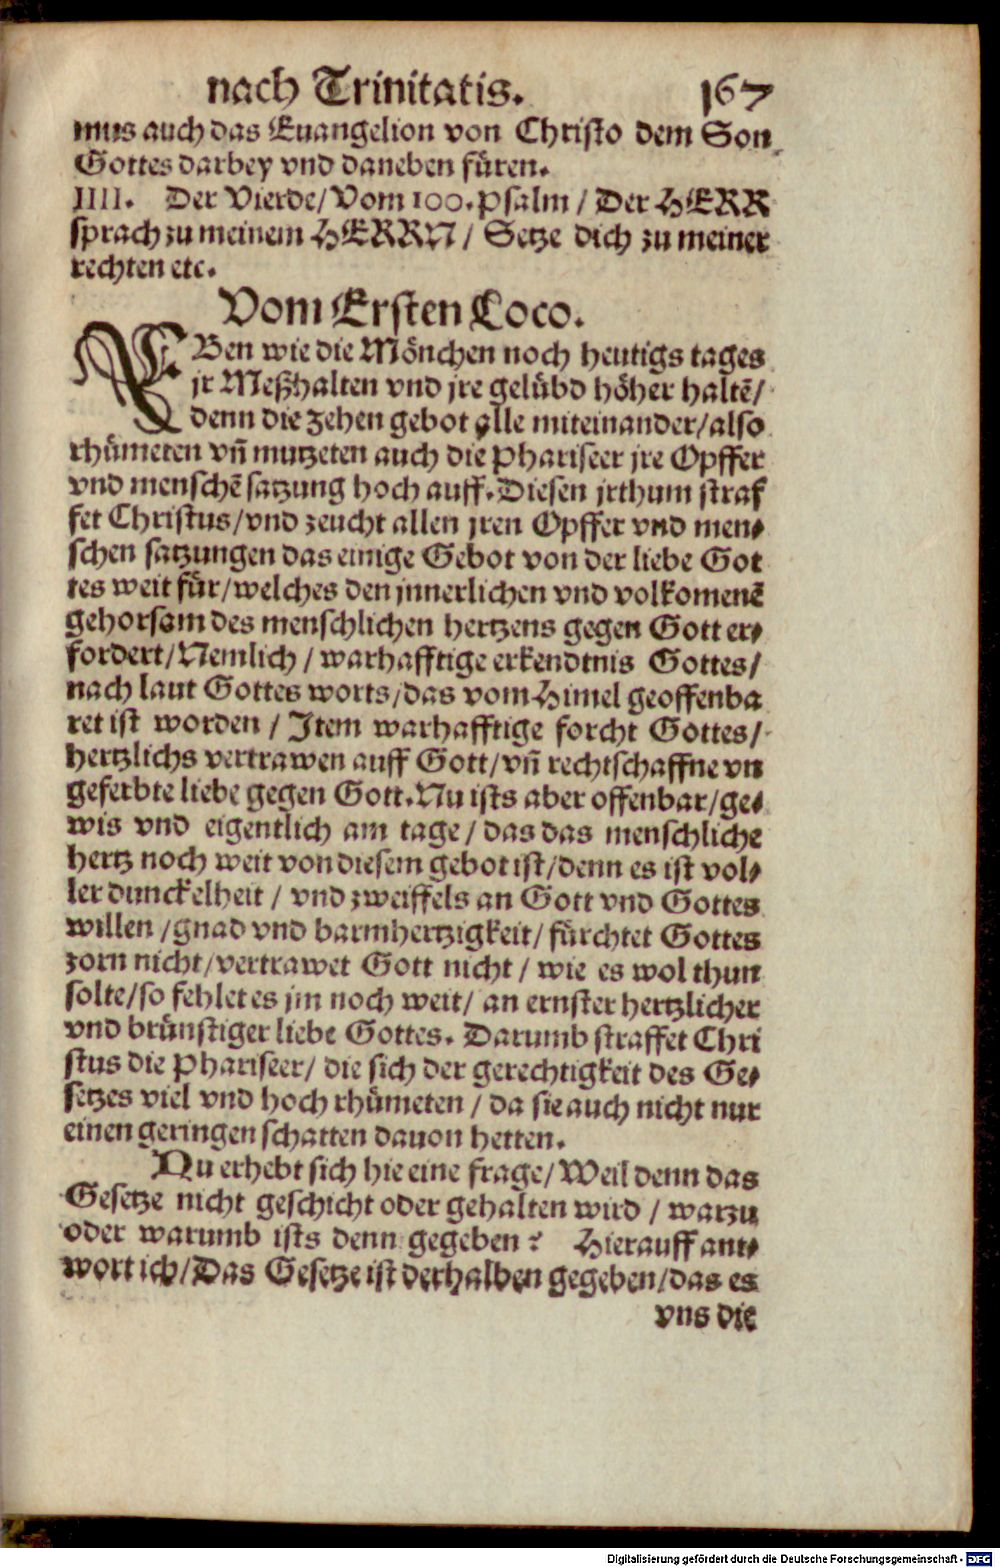 nach Trinitatis. 167
mus auch das Euangelion von Christo dem Son
Gottes darbey vnd daneben füren.
IIII. Der Vierde/Vom 100. Psalm / Der HERR
sprach zu meinem HERRN / Setze dich zu meiner
rechten etc.
Vom Ersten Loco.
EBen wie die Mönchen noch heutigs tages
jr Meßhalten vnd jre gelübd höher haltē/
denn die zehen gebot alle miteinander/also
rhümeten vn̄ mutzeten auch die Phariseer jre Opffer
vnd menschē satzung hoch auff. Diesen jrthum straf
fet Christus/vnd zeucht allen jren Opffer vnd men-
schen satzungen das einige Gebot von der liebe Got
tes weit für/welches den jnnerlichen vnd volkomenē
gehorsam des menschlichen hertzens gegen Gott er-
fordert/Nemlich / warhafftige erkendtnis Gottes/
nach laut Gottes worts/das vom Himel geoffenba
ret ist worden / Item warhafftige forcht Gottes/
hertzlichs vertrawen auff Gott/vn̄ rechtschaffne vn
geferbte liebe gegen Gott. Nu ists aber offenbar/ge-
wis vnd eigentlich am tage / das das menschliche
hertz noch weit von diesem gebot ist/denn es ist vol-
ler dunckelheit / vnd zweiffels an Gott vnd Gottes
willen /gnad vnd barmhertzigkeit/ fürchtet Gottes
zorn nicht/vertrawet Gott nicht / wie es wol thun
solte/so fehlet es jm noch weit/ an ernster hertzlicher
vnd brünstiger liebe Gottes. Darumb straffet Chri
stus die Phariseer/ die sich der gerechtigkeit des Ge-
setzes viel vnd hoch rhümeten / da sie auch nicht nur
einen geringen schatten dauon hetten.
Nu erhebt sich hie eine frage/Weil denn das
Gesetze nicht geschicht oder gehalten wird / warzu
oder warumb ists denn gegeben? Hierauff ant-
wort ich/Das Gesetze ist derhalben gegeben/das es
vns die
Digitalisierung gefördert durch die Deutsche Forschungsgemeinschaft - DFG